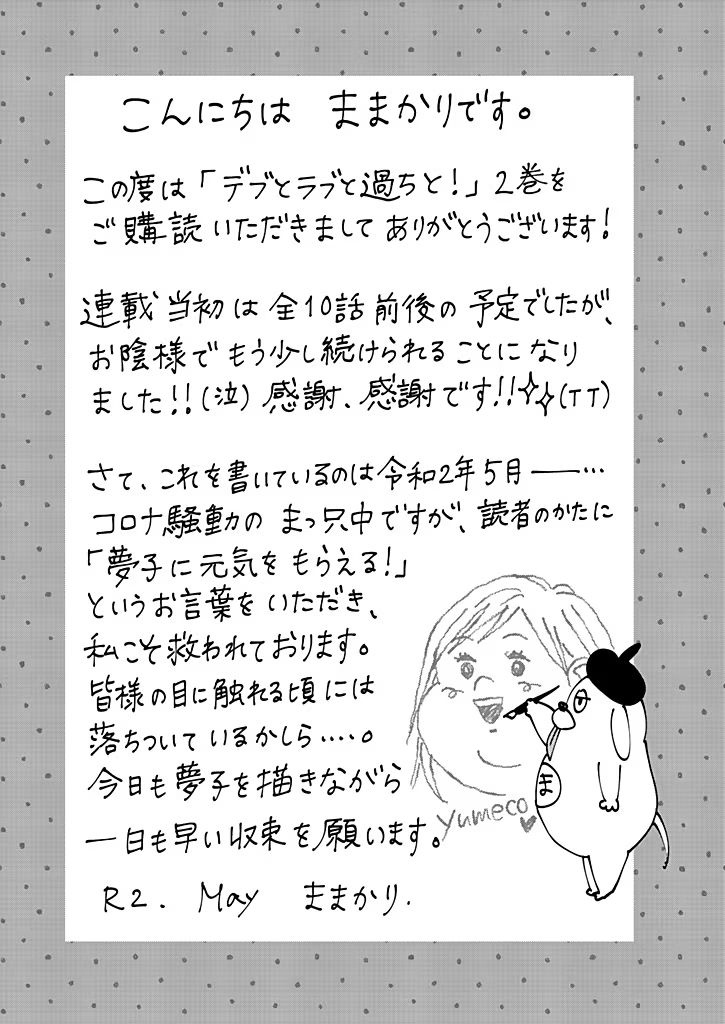 こんにちは ままかりです。
この度は「デブとラブと過ちと！」2巻を
ご購読いただきまして ありがとうございます！
連載当初は全10話前後の予定でしたが、
お陰様でもう少し続けられることになり
ました！！（泣）感謝、感謝です！！✧✧（TT）
さて、これを書いているのは令和2年5月――…
コロナ騒動のまっ只中ですが、読者のかたに
「夢子に元気をもらえる！」
というお言葉をいただき、
私こそ救われております。
皆様の目に触れる頃には
落ちついているかしら‥‥。
今日も夢子を描きながら
一日も早い収束を願います。
R2. May ままかり.
yumeco♥
ま